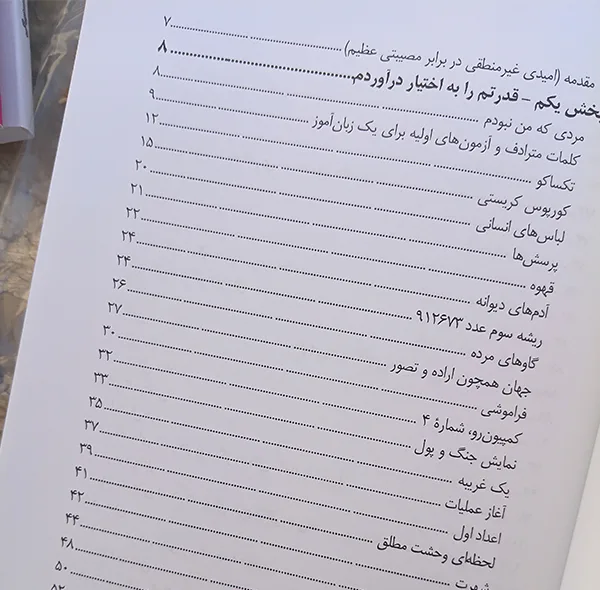 مقدمه (امیدی غیرمنطقی در برابر مصیبتی عظیم) ۷
بخش یکم – قدرتم را به اختیار درآوردم ۸
مردی که من نبودم ۸
کلمات مترادف و آزمون‌های اولیه برای یک زبان‌آموز ۹
تکساکو ۱۲
کورپوس کریستی ۱۵
لباس‌های انسانی ۲۰
پرسش‌ها ۲۱
قهوه ۲۲
آدم‌های دیوانه ۲۴
ریشه سوم عدد ۹۱۲۶۷۳ ۲۴
گاوهای مرده ۲۶
جهان همچون اراده و تصور ۲۷
فراموشی ۳۰
کمپیون‌رو، شمارهٔ ۴ ۳۲
نمایش جنگ و پول ۳۳
یک غریبه ۳۵
آغاز عملیات ۳۷
اعداد اول ۳۹
لحظه‌ای وحشت مطلق ۴۱
شهرت ۴۲
۴۴
۴۸
۵۰
۵۲